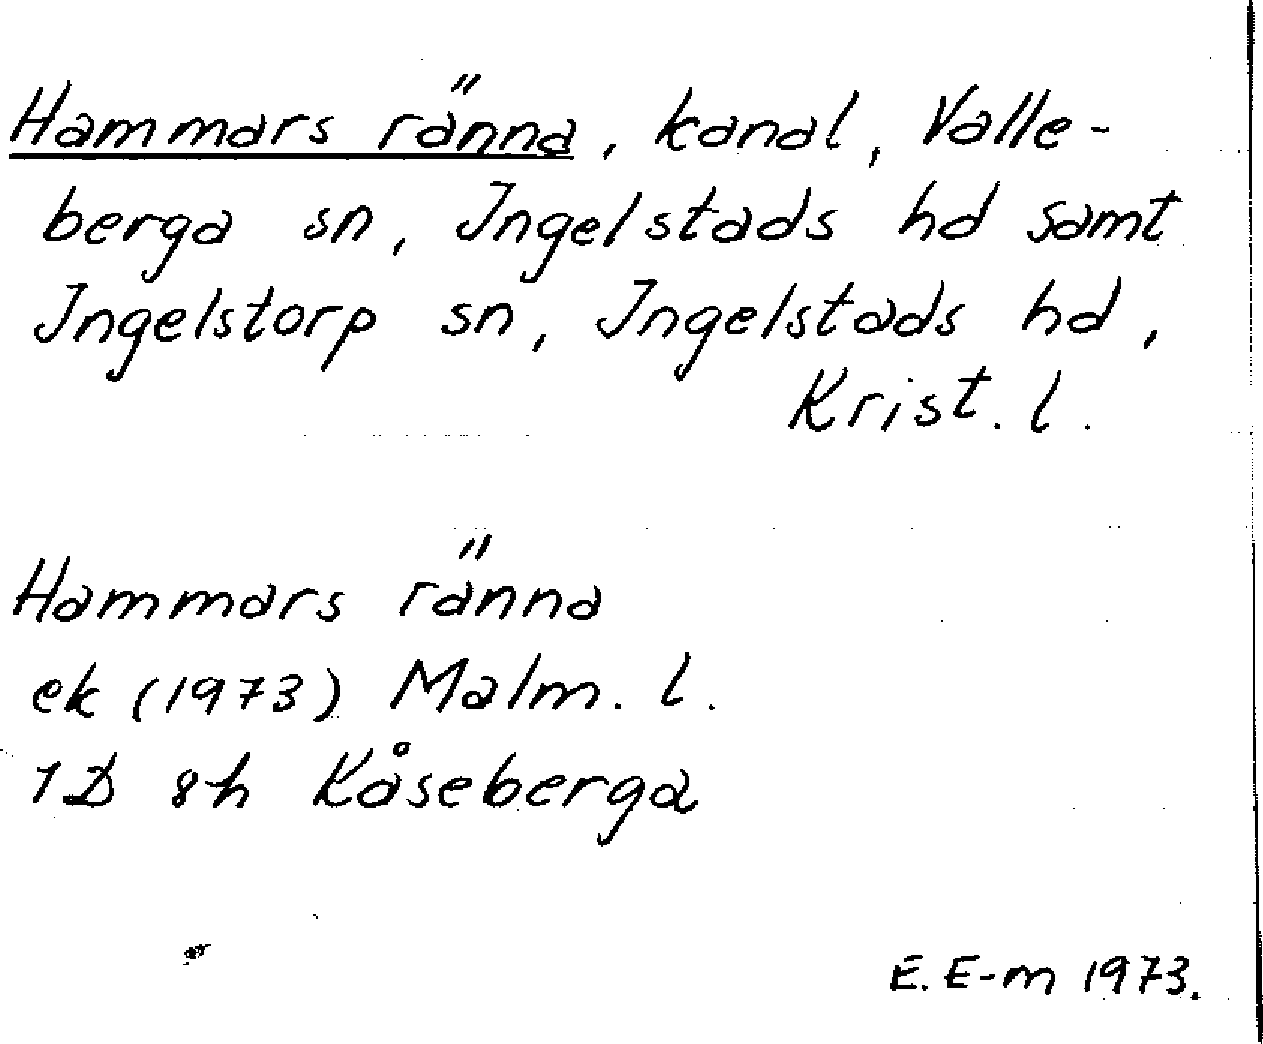 Hammars ränna, kanal, Valle-
berga sn, Ingelstads hd samt
Ingelstorp sn, Ingelstads hd,
Krist. l.
Hammars ränna
ek (1973) Malm. l.
1D 8h Kåseberga
E. E-m 1973.